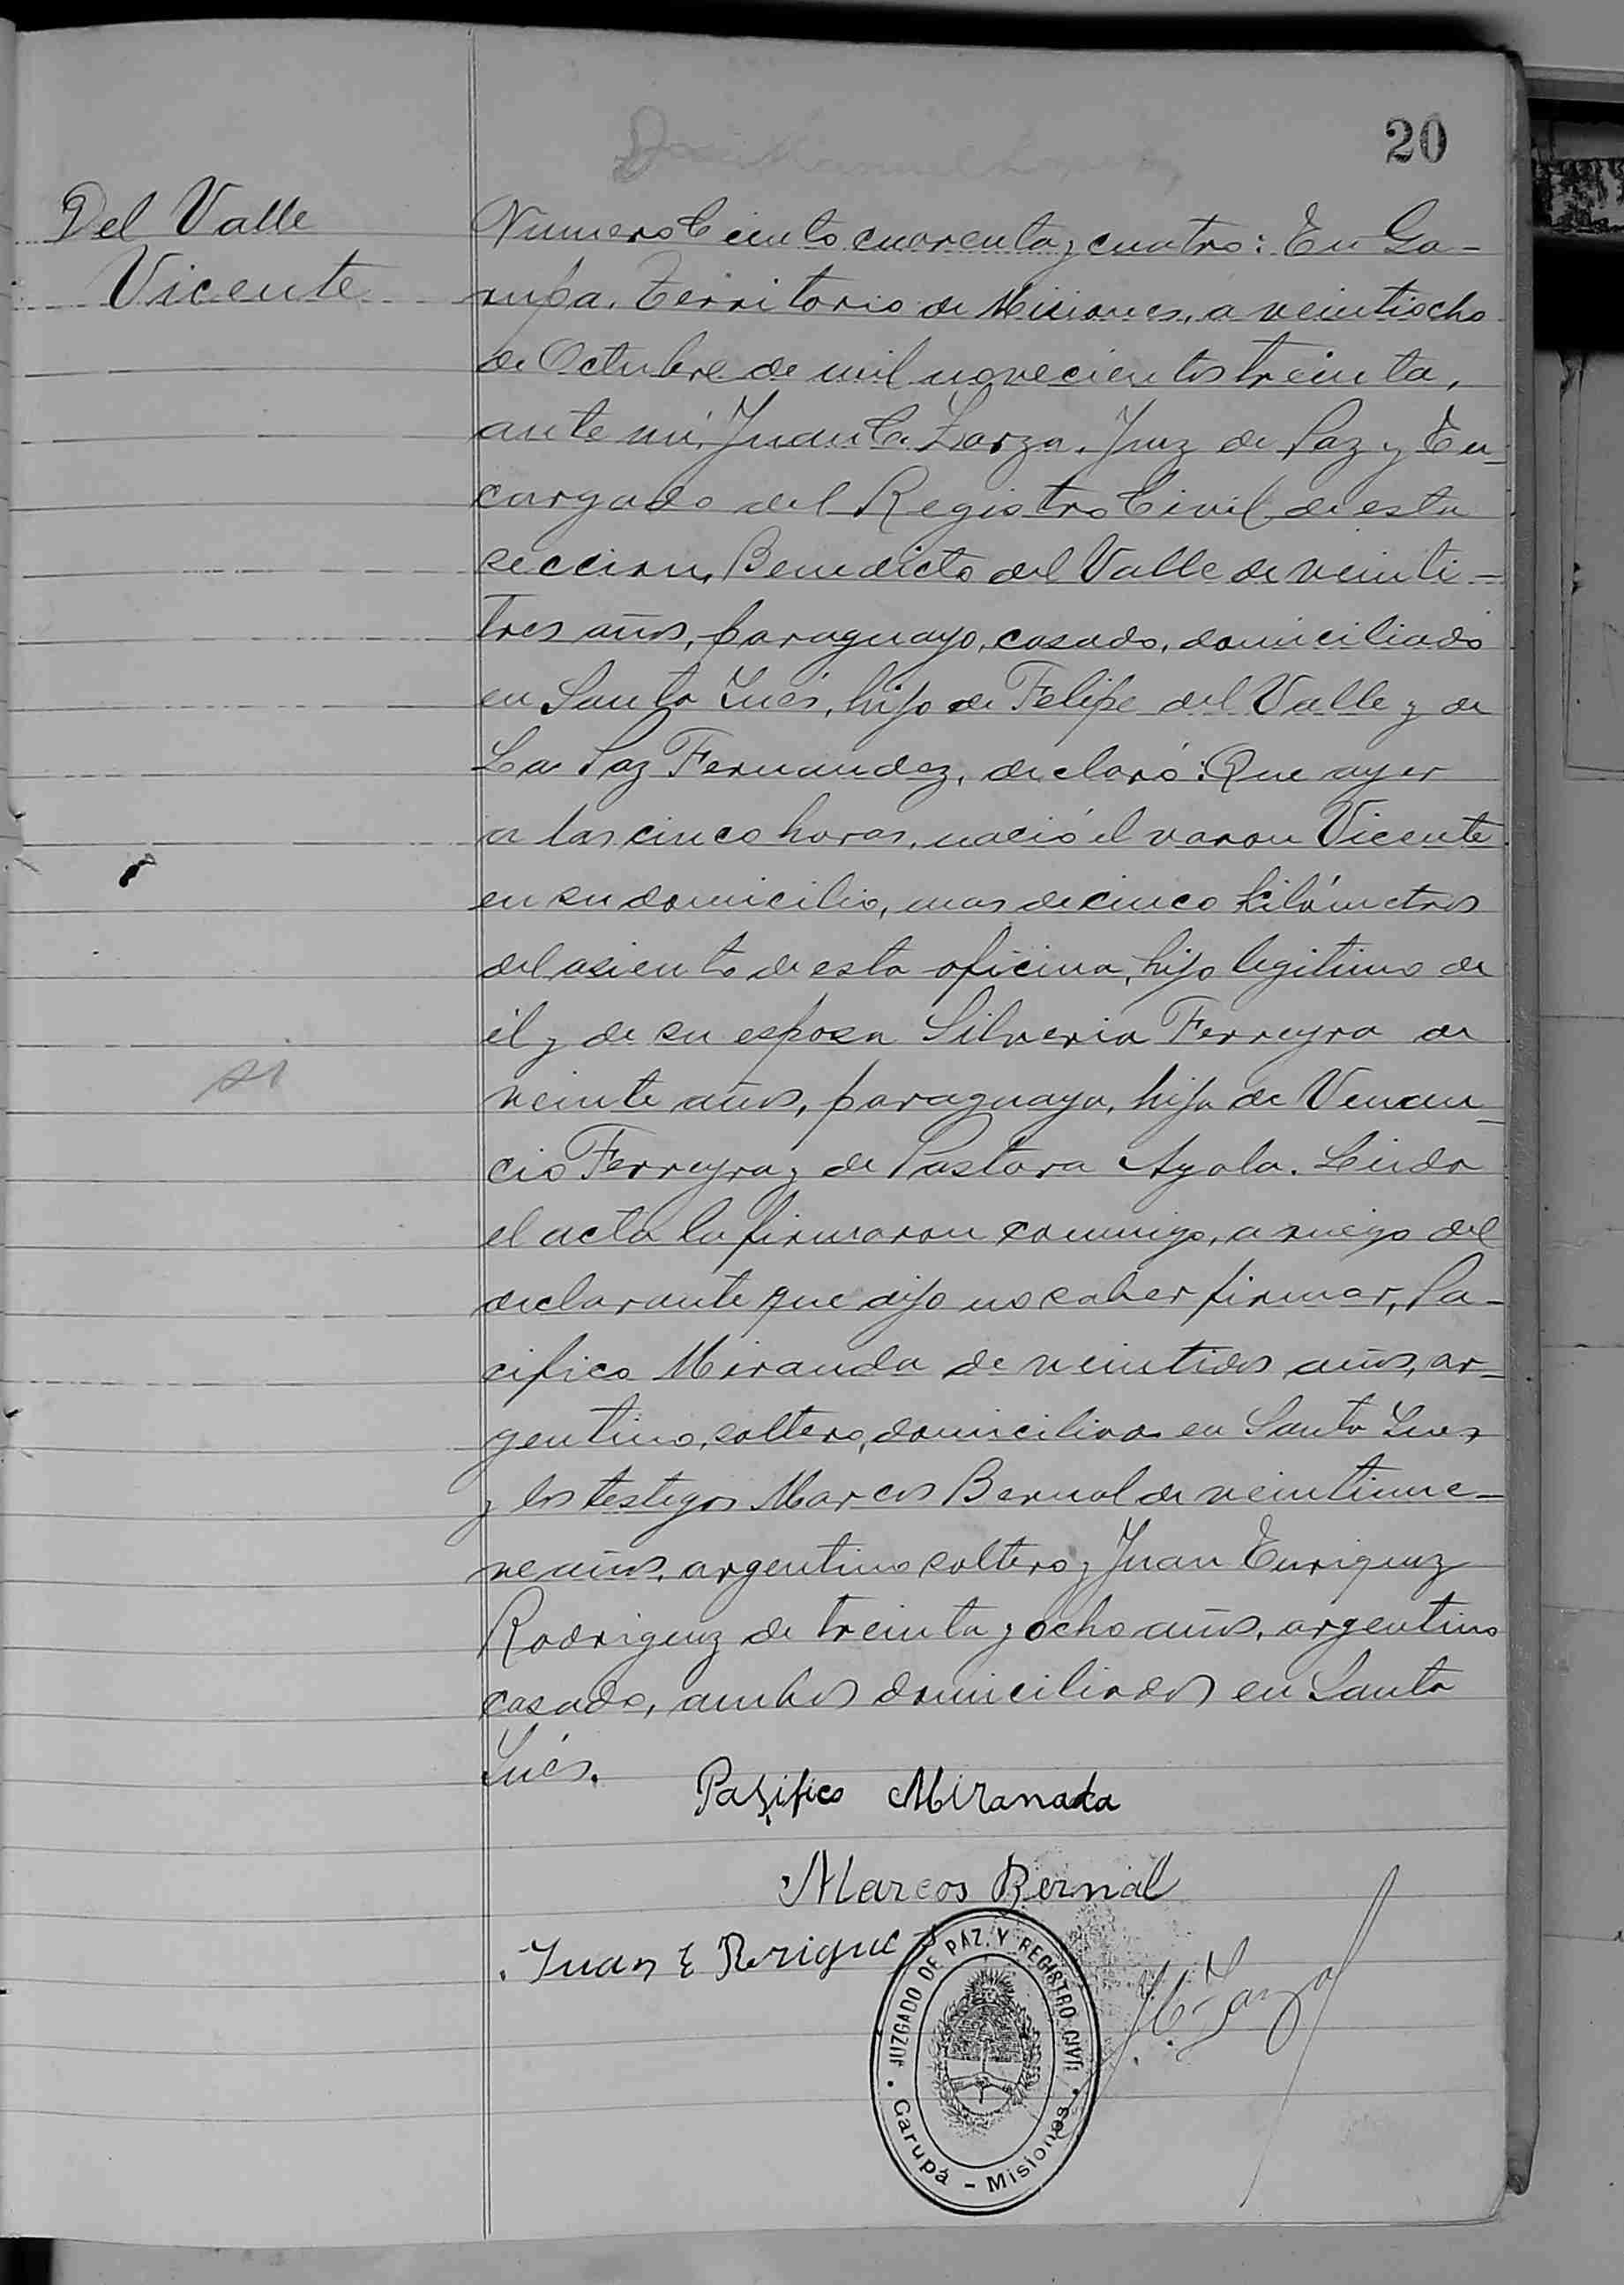 20
Del Valle
Vicente
Numero Ciento cuarenta y cuatro: En Ga-
rupa, Territorio de Misiones, a veintiocho
de Octubre de mil novecientos treinta,
ante mi, Juan C. Larza, Juez de Paz y En-
cargado del Registro Civil de esta
seccion, Benedicto del Valle de veinti-
tres años, paraguayo, casado, domiciliado
en Santa Inés, hijo de Felipe del Valle y de
La Paz Fernandez, declaró: Que ayer
a las cinco horas, nació el varon Vicente
en su domicilio, mas de cinco kilómetros
del asiento de esta oficina, hijo legitimo de
él y de su esposa Silveria Ferreyra de
veinte años, paraguaya, hija de Venan-
cio Ferreyra y de Pastora Ayala. Leida
el acta la firmaron conmigo, a ruego del
declarante que dijo no saber firmar, Pa-
cifico Miranda de veintidos años, ar-
gentino, soltero, domiciliado en Santa Ines
y los testigos Marcos Bernal de veintinue-
ve años, argentino soltero y Juan Enriquez
Rodriguez de treinta y ocho años, argentino
casado, ambos domiciliados en Santa
Inés.
Pasifico Miranda
Marcos Bernal
Juan E Rrigue
J. C. Larza
JUZGADO DE PAZ Y REGISTRO CIVIL
Garupá - Misiones